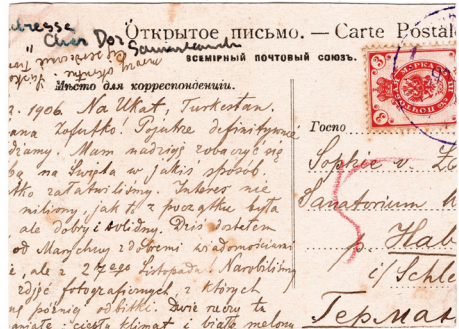 Открытое письмо. — Carte Postale
Adresse
" Chor Dor Samarkand
ВСЕМІРНЫЙ ПОЧТОВЫЙ СОЮЗЪ.
Мѣсто для корреспонденціи.
1906. Na Ukat, Turkestan.
ana Zofutko. Pojutrze definitywnie
dzamy. Mam nadzieję zobaczyć się
na Święta w jakiś sposób.
tko załatwiliśmy. Interes nie
miliony, jak to z początku była
ale dobry i solidny. Dziś dostałem
od Marychny z dobremi wiadomościami
e, ale z 27ego Listopada. Narobiliśmy
zdjęć fotograficznych, z których
ną później odbitki. Dwie rzeczy tu
aniałe: ciepły klimat i białe melony
3
МАРКА
3
Госпо
Sophie v.
Sanatorium
p. Hab
i/Schle
Герма